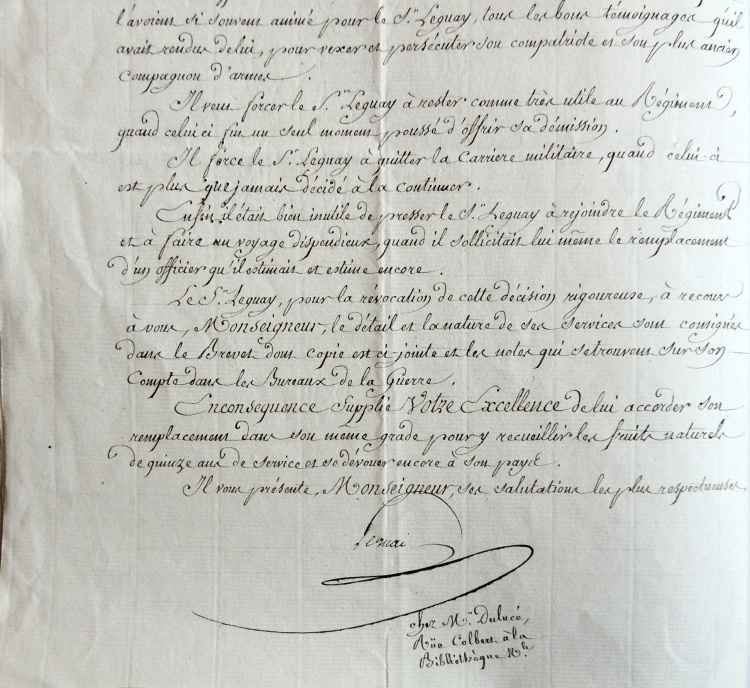 l'avoient si souvent animé pour le S.r Leguay, tous les bons témoignages qu'il
avait rendus de lui, pour vexer et persécuter son compatriote et son plus ancien
compagnon d'armes.
Il veut forcer le S.r Leguay à rester comme très utile au Régiment,
quand celui ci fut un seul moment poussé d'offrir sa démission.
Il force le S.r Leguay à quitter la Carriere militaire, quand celui-ci
est plus que jamais décidé à la continuer.
Enfin il était bien inutile de presser le S.r Leguay à rejoindre le Régiment
et à faire un voyage dispendieux, quand il sollicitait lui même le remplacement
d'un officier qu'il estimait et estime encore.
Le S.r Leguay, pour la révocation de cette décision rigoureuse, à recours
à vous, Monseigneur, le détail et la nature de ses services sont consignés
dans le Brevet dont copie est ci jointe et les notes qui se trouvent sur son
Compte dans les Bureaux de la Guerre.
En conséquence Supplie Votre Excellence de lui accorder son
remplacement dans son même grade pour y recueillir les fruits naturels
de quinze ans de service et se dévouer encore à son pays.
Il vous présente, Monseigneur, ses salutations les plus respectueuses
Leguai
chez M.r Dulucé,
Rüe Colbert à la
Bibliothèque N.le